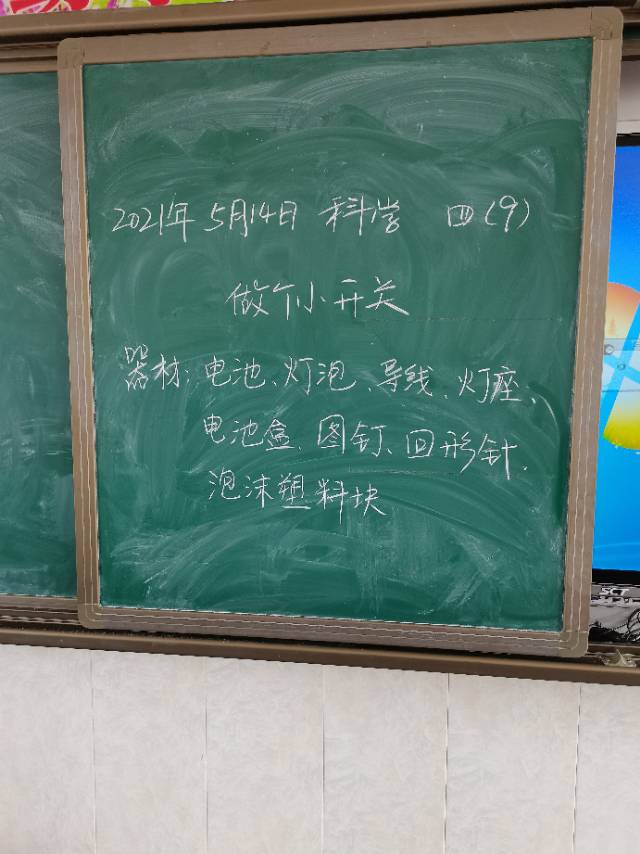 2021年5月14日 科学 四(9)
做个小开关
器材:电池、灯泡、导线、灯座、
电池盒、图钉、回形针、
泡沫塑料块